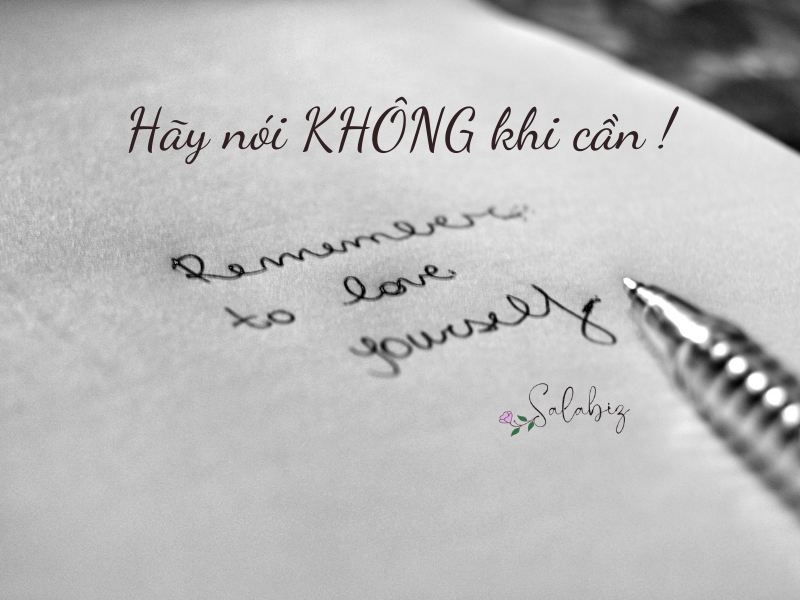 Hãy nói KHÔNG khi cần !
Remember
to love
yourself
Salabiz